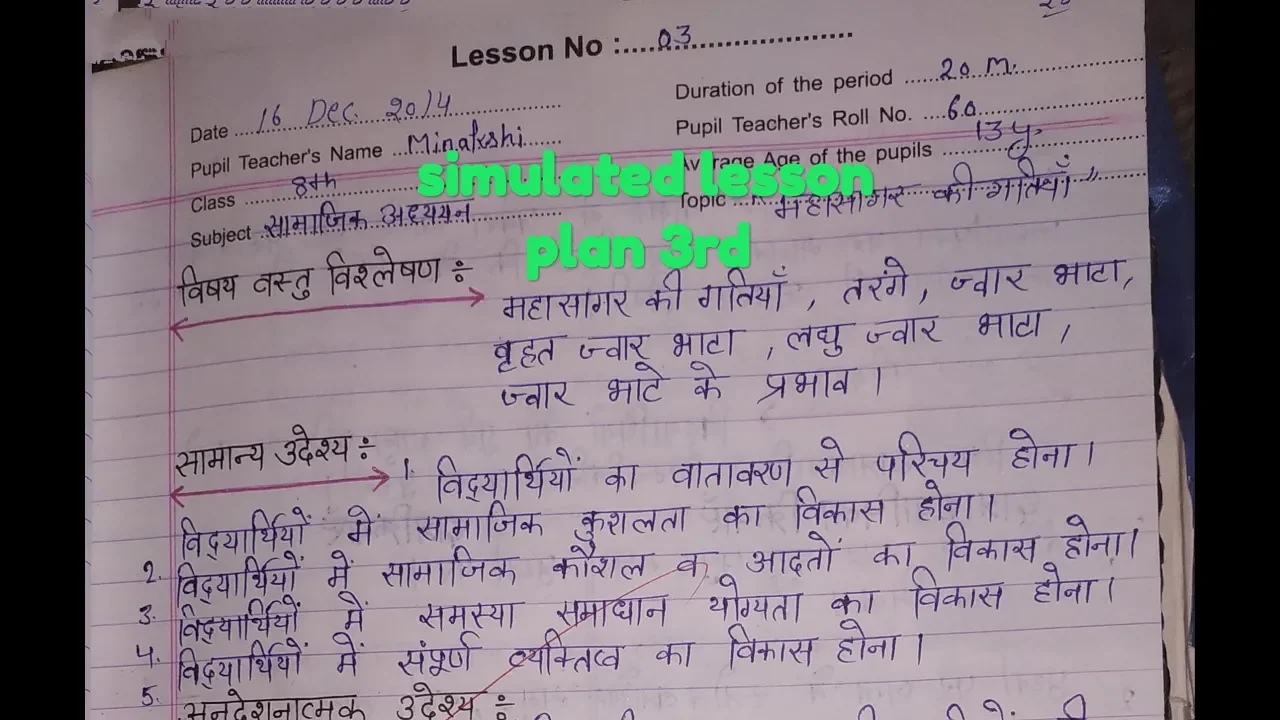 Lesson No : 03
Date 16 Dec. 2014
Duration of the period 20 M.
Pupil Teacher's Name Minakshi
Pupil Teacher's Roll No. 60
Class 8th
Average Age of the pupils 13 y.
Subject सामाजिक अध्ययन
Topic महासागर की गतियाँ"
simulated lesson
plan 3rd
विषय वस्तु विश्लेषण ÷
महासागर की गतियाँ , तरंगे , ज्वार भाटा,
वृहत ज्वार भाटा , लघु ज्वार भाटा ,
ज्वार भाटे के प्रभाव ।
सामान्य उदेश्य ÷
1. विद्यार्थियों का वातावरण से परिचय होना ।
विद्यार्थियों में सामाजिक कुशलता का विकास होना ।
2. विद्यार्थियों में सामाजिक कौशल व आदतों का विकास होना ।
3. विद्यार्थियों में समस्या समाधान योग्यता का विकास होना ।
4. विद्यार्थियों में संपूर्ण व्यक्तित्व का विकास होना ।
5. अनुदेशनात्मक उदेश्य ÷